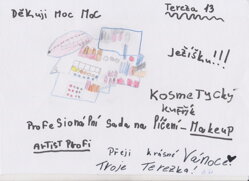 DěkUji Moc Moc
Tereza 13
Ježíšku!!!
KosmeTycký
kufřík
Profesionální Sada na líčení - Makeup
ARTIST Profi
Přeji krásné Vánoce!
Tvoje Terezka!